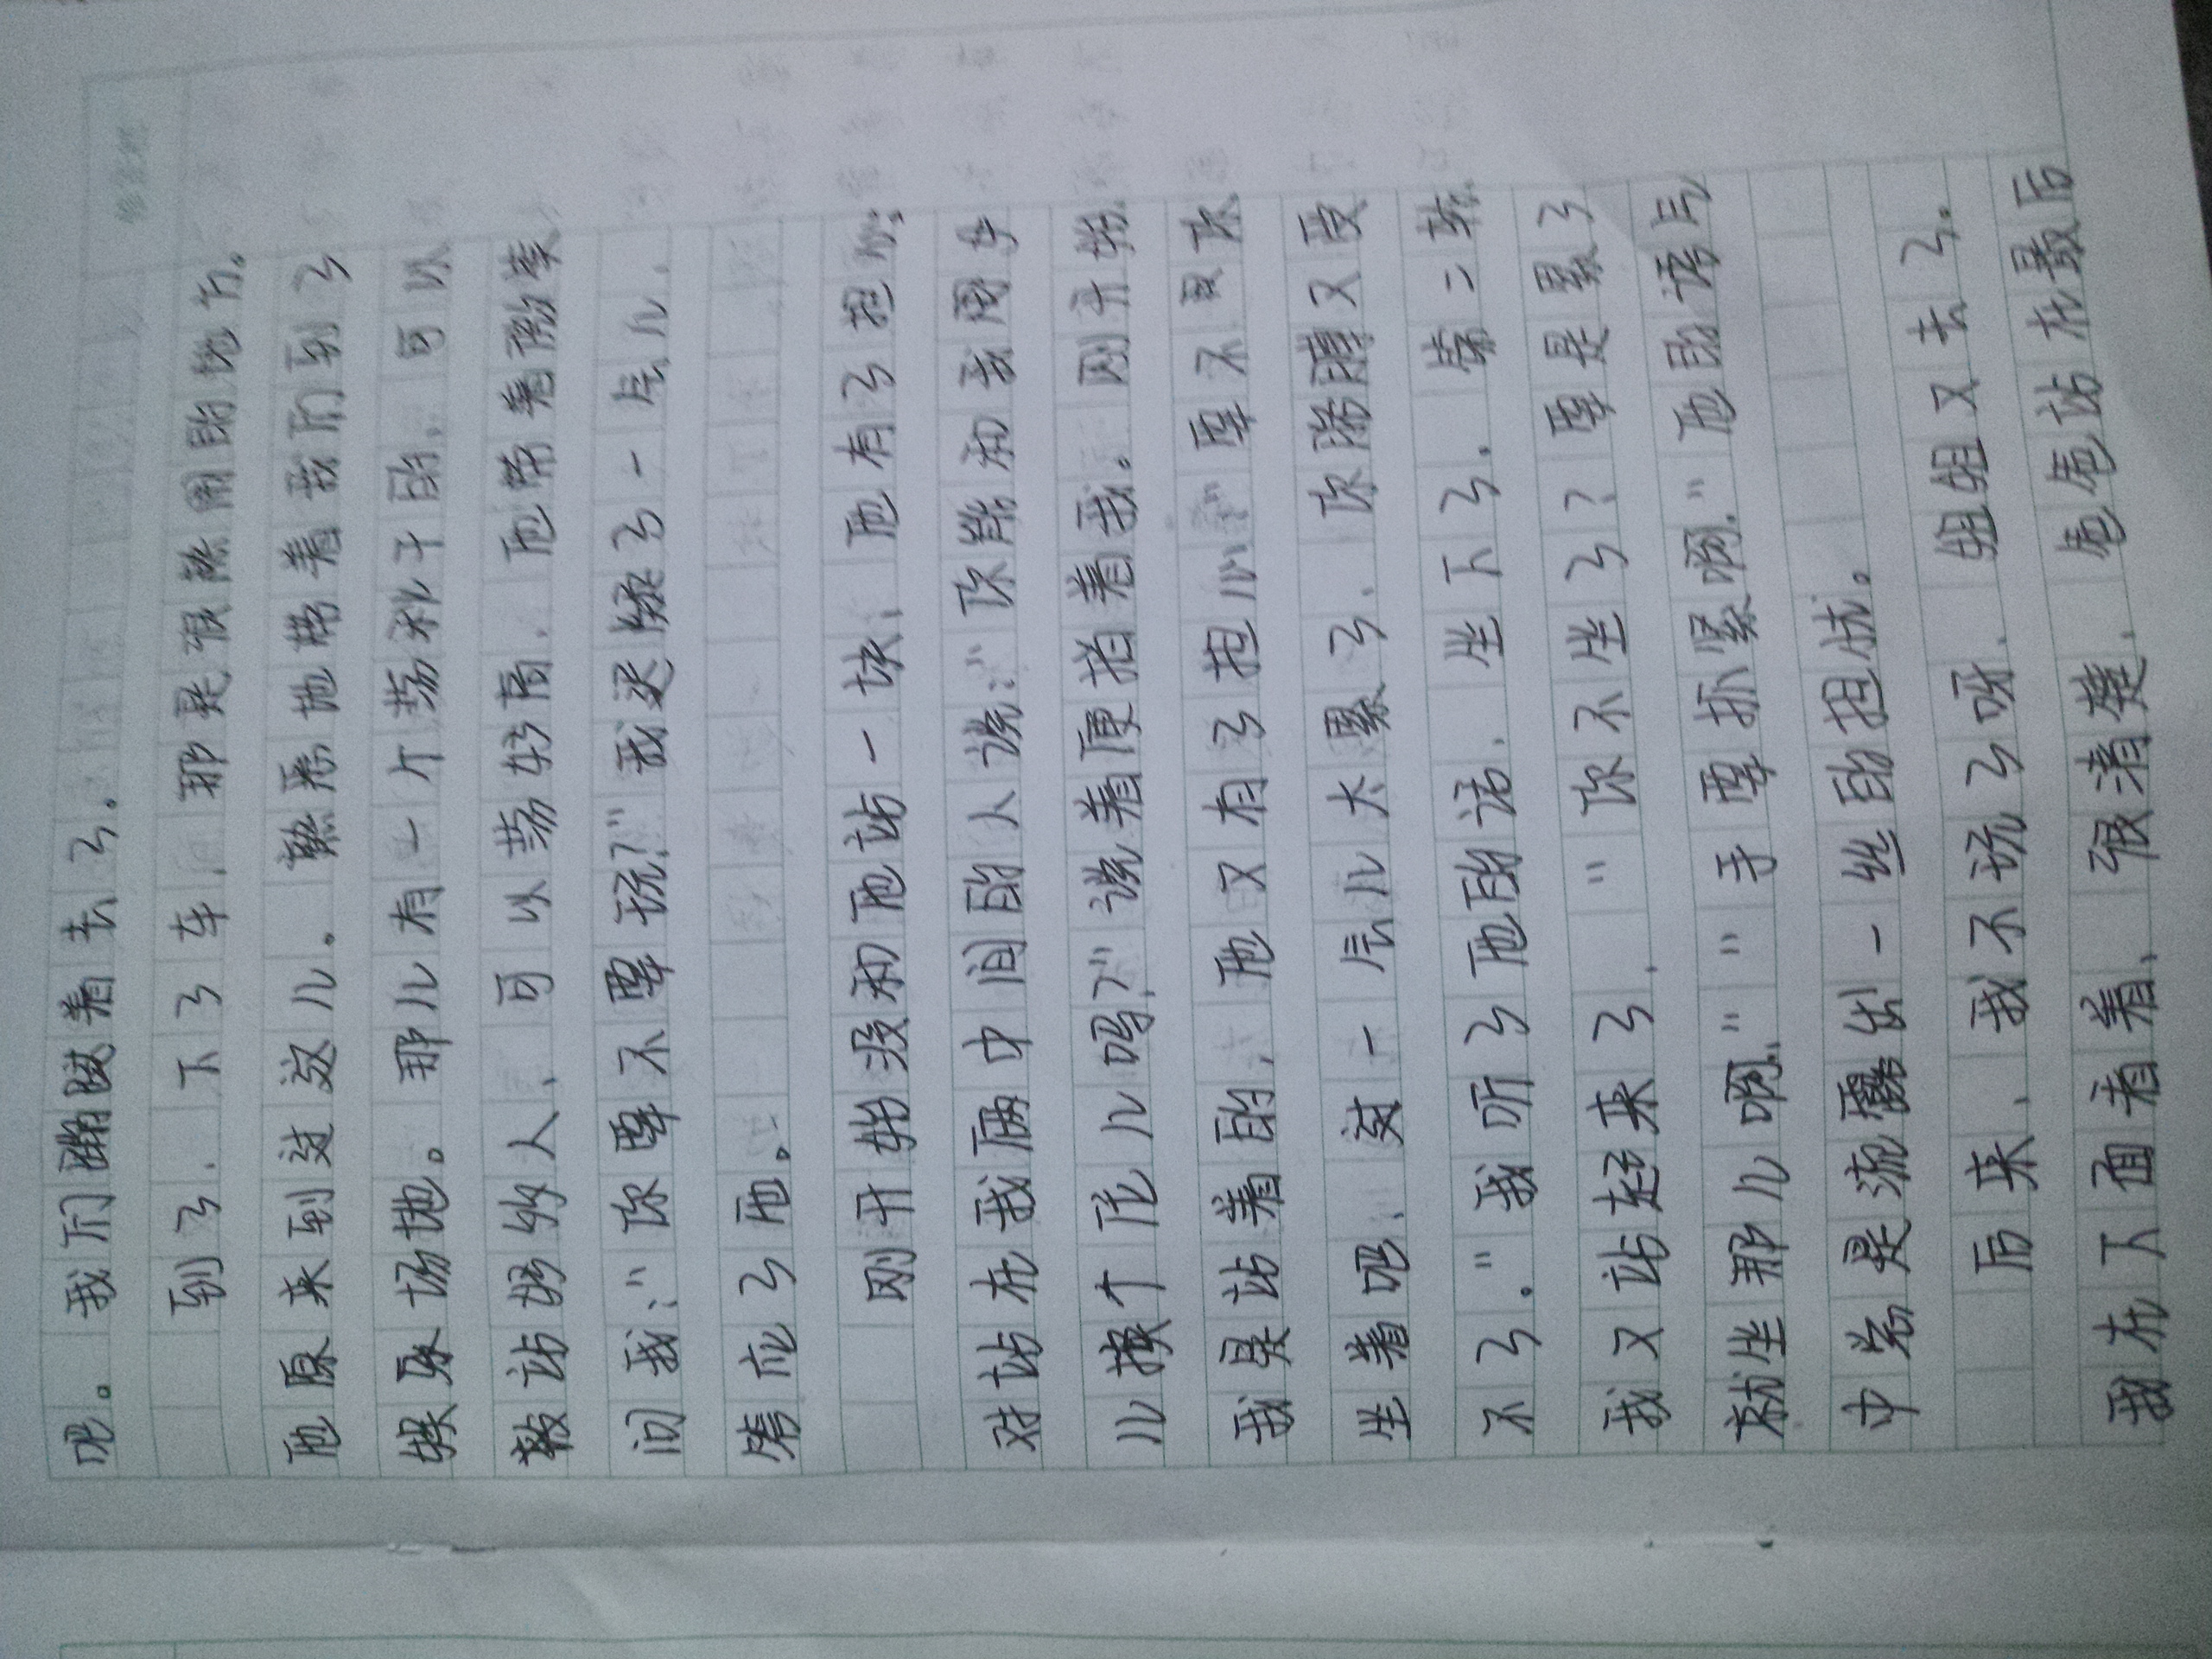 吧。我们蹦跳着去了。
到了,下了车,那是很热闹的地方。
他原来到过这儿。熟悉地带着我们到了
娱乐场地。那儿有一个荡秋千的,可以
载站好多人,可以荡好高,他带着微笑
问我:"你要不要玩?"我迟疑了一会儿,
答应了他。
刚开始没和他站一块,他有了担心,
对站在我两中间的人说:"你能和我同学
儿换个位儿吗?"说着便拍着我。刚开始
我是站着的,他又有了担心"要不,要不你
坐着吧,这一会儿太累了,你满腿又受
不了。"我听了他的话,坐下了,第二轮
我又站起来了,""你不坐了?要是累了
就坐那儿啊.""手要抓紧啊."他的语气
中总是流露出一丝的担忧。
后来,我不玩了呀,姐姐又去了。
我在下面看着,很清楚,爸爸站在最后